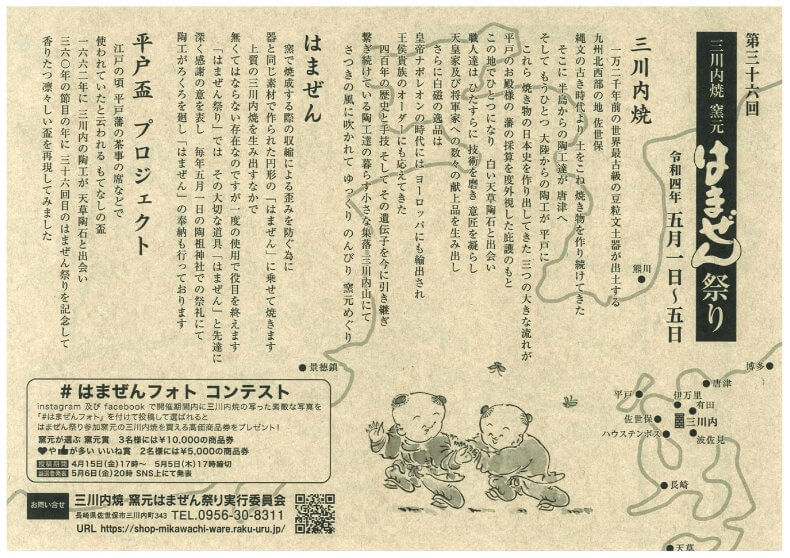 第三十六回
三川内焼 窯元 はまぜん祭り
令和四年 五月一日〜五日
三川内焼
一万二千年前の世界最古級の豆粒文土器が出土する
九州北西部の地 佐世保
縄文の古き時代より 土をこね 焼き物を作り続けてきた
そこに 半島からの陶工達が 唐津へ
そして もうひとつ 大陸からの陶工が 平戸に
これら 焼き物の日本史を作り出してきた 三つの大きな流れが
平戸のお殿様の 藩の採算を度外視した庇護のもと
この地でひとつになり 白い天草陶石と出会い
職人達は ひたすらに 技術を磨き 意匠を凝らし
天皇家及び将軍家への数々の献上品を生み出し
さらに白磁の逸品は
皇帝ナポレオンの時代には ヨーロッパにも輸出され
王侯貴族のオーダーにも応えてきた
四百年の歴史と手技 そして その遺伝子を今に引き継ぎ
繋ぎ続けている陶工達の暮らす小さな集落 三川内山にて
さつきの風に吹かれて ゆっくり のんびり 窯元めぐり
はまぜん
窯で焼成する際の収縮による歪みを防ぐ為に
器と同じ素材で作られた円形の「はまぜん」に乗せて焼きます
上質の三川内焼を生み出すなかで
無くてはならない存在なのですが 一度の使用で役目を終えます
「はまぜん祭り」では その大切な道具「はまぜん」と先達に
深く感謝の意を表し 毎年五月一日の陶祖神社での祭礼にて
陶工がろくろを廻し「はまぜん」の奉納も行っております
平戸盃 プロジェクト
江戸の頃 平戸藩の茶事の席などで
使われていたと云われる もてなしの盃
一六六二年に 三川内の陶工が 天草陶石と出会い
三六〇年の節目の年に 三十六回目のはまぜん祭りを記念して
香りたつ凛々しい盃を再現してみました
熊川
景徳鎮
博多
唐津
平戸
伊万里
有田
佐世保
三川内
ハウステンボス
波佐見
長崎
天草
#はまぜんフォト コンテスト
instagram 及び facebook で開催期間内に三川内焼の写った素敵な写真を
「#はまぜんフォト」を付けて投稿して選ばれると
はまぜん祭り参加窯元の三川内焼を買える高価商品券をプレゼント!
窯元が選ぶ 窯元賞 3名様には¥10,000の商品券
♥や👍が多い いいね賞 2名様には¥5,000の商品券
投稿期間 4月15日(金)17時〜 5月5日(木)17時締切
5月6日(金)20時 SNS上にて発表
お問い合せ 三川内焼 窯元はまぜん祭り実行委員会
長崎県佐世保市三川内町343 TEL.0956-30-8311
URL https://shop-mikawachi-ware.raku-uru.jp/